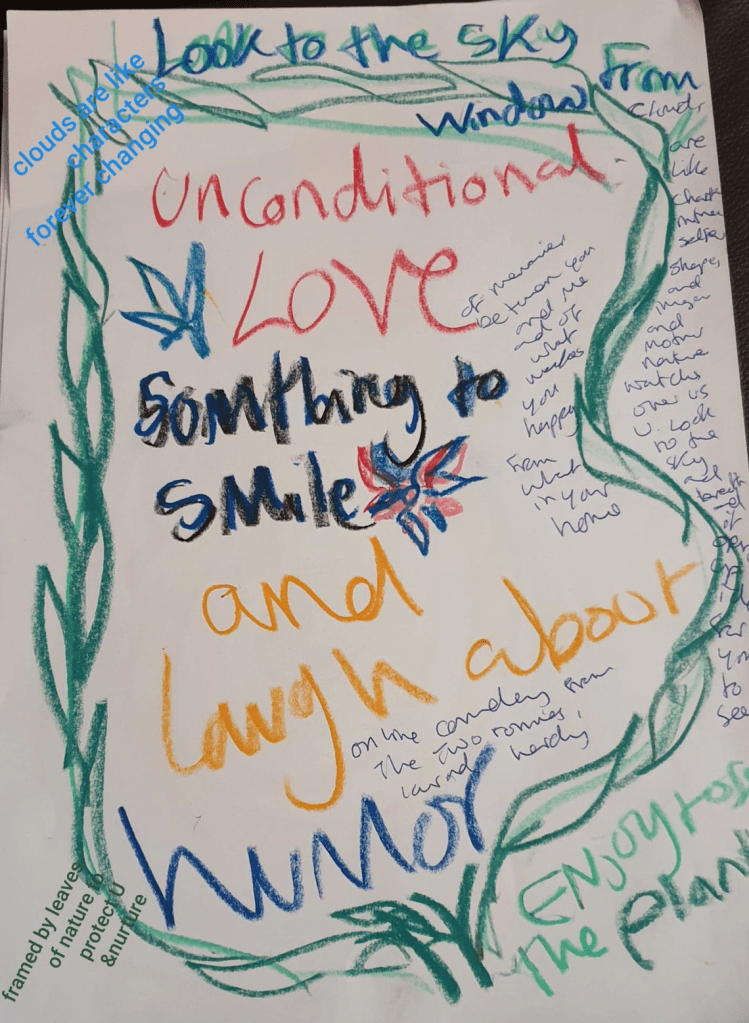 Look to the sky
From
Window
clouds are like
characters
forever changing
unconditional
Love
Something to
smile
and
laugh about
humor
of memories
between you
and me
and of
what
makes
you
happy
From
what
in your
home
Clouds
are
like
shapes
and
and
mother
nature
watches
over us
U. Look
to the
sky
and
it
for
you
to
see
online comedy from
The Two ronnies,
hardy
Enjoy
the plant
framed by leaves
of nature to
protect U
&nurture